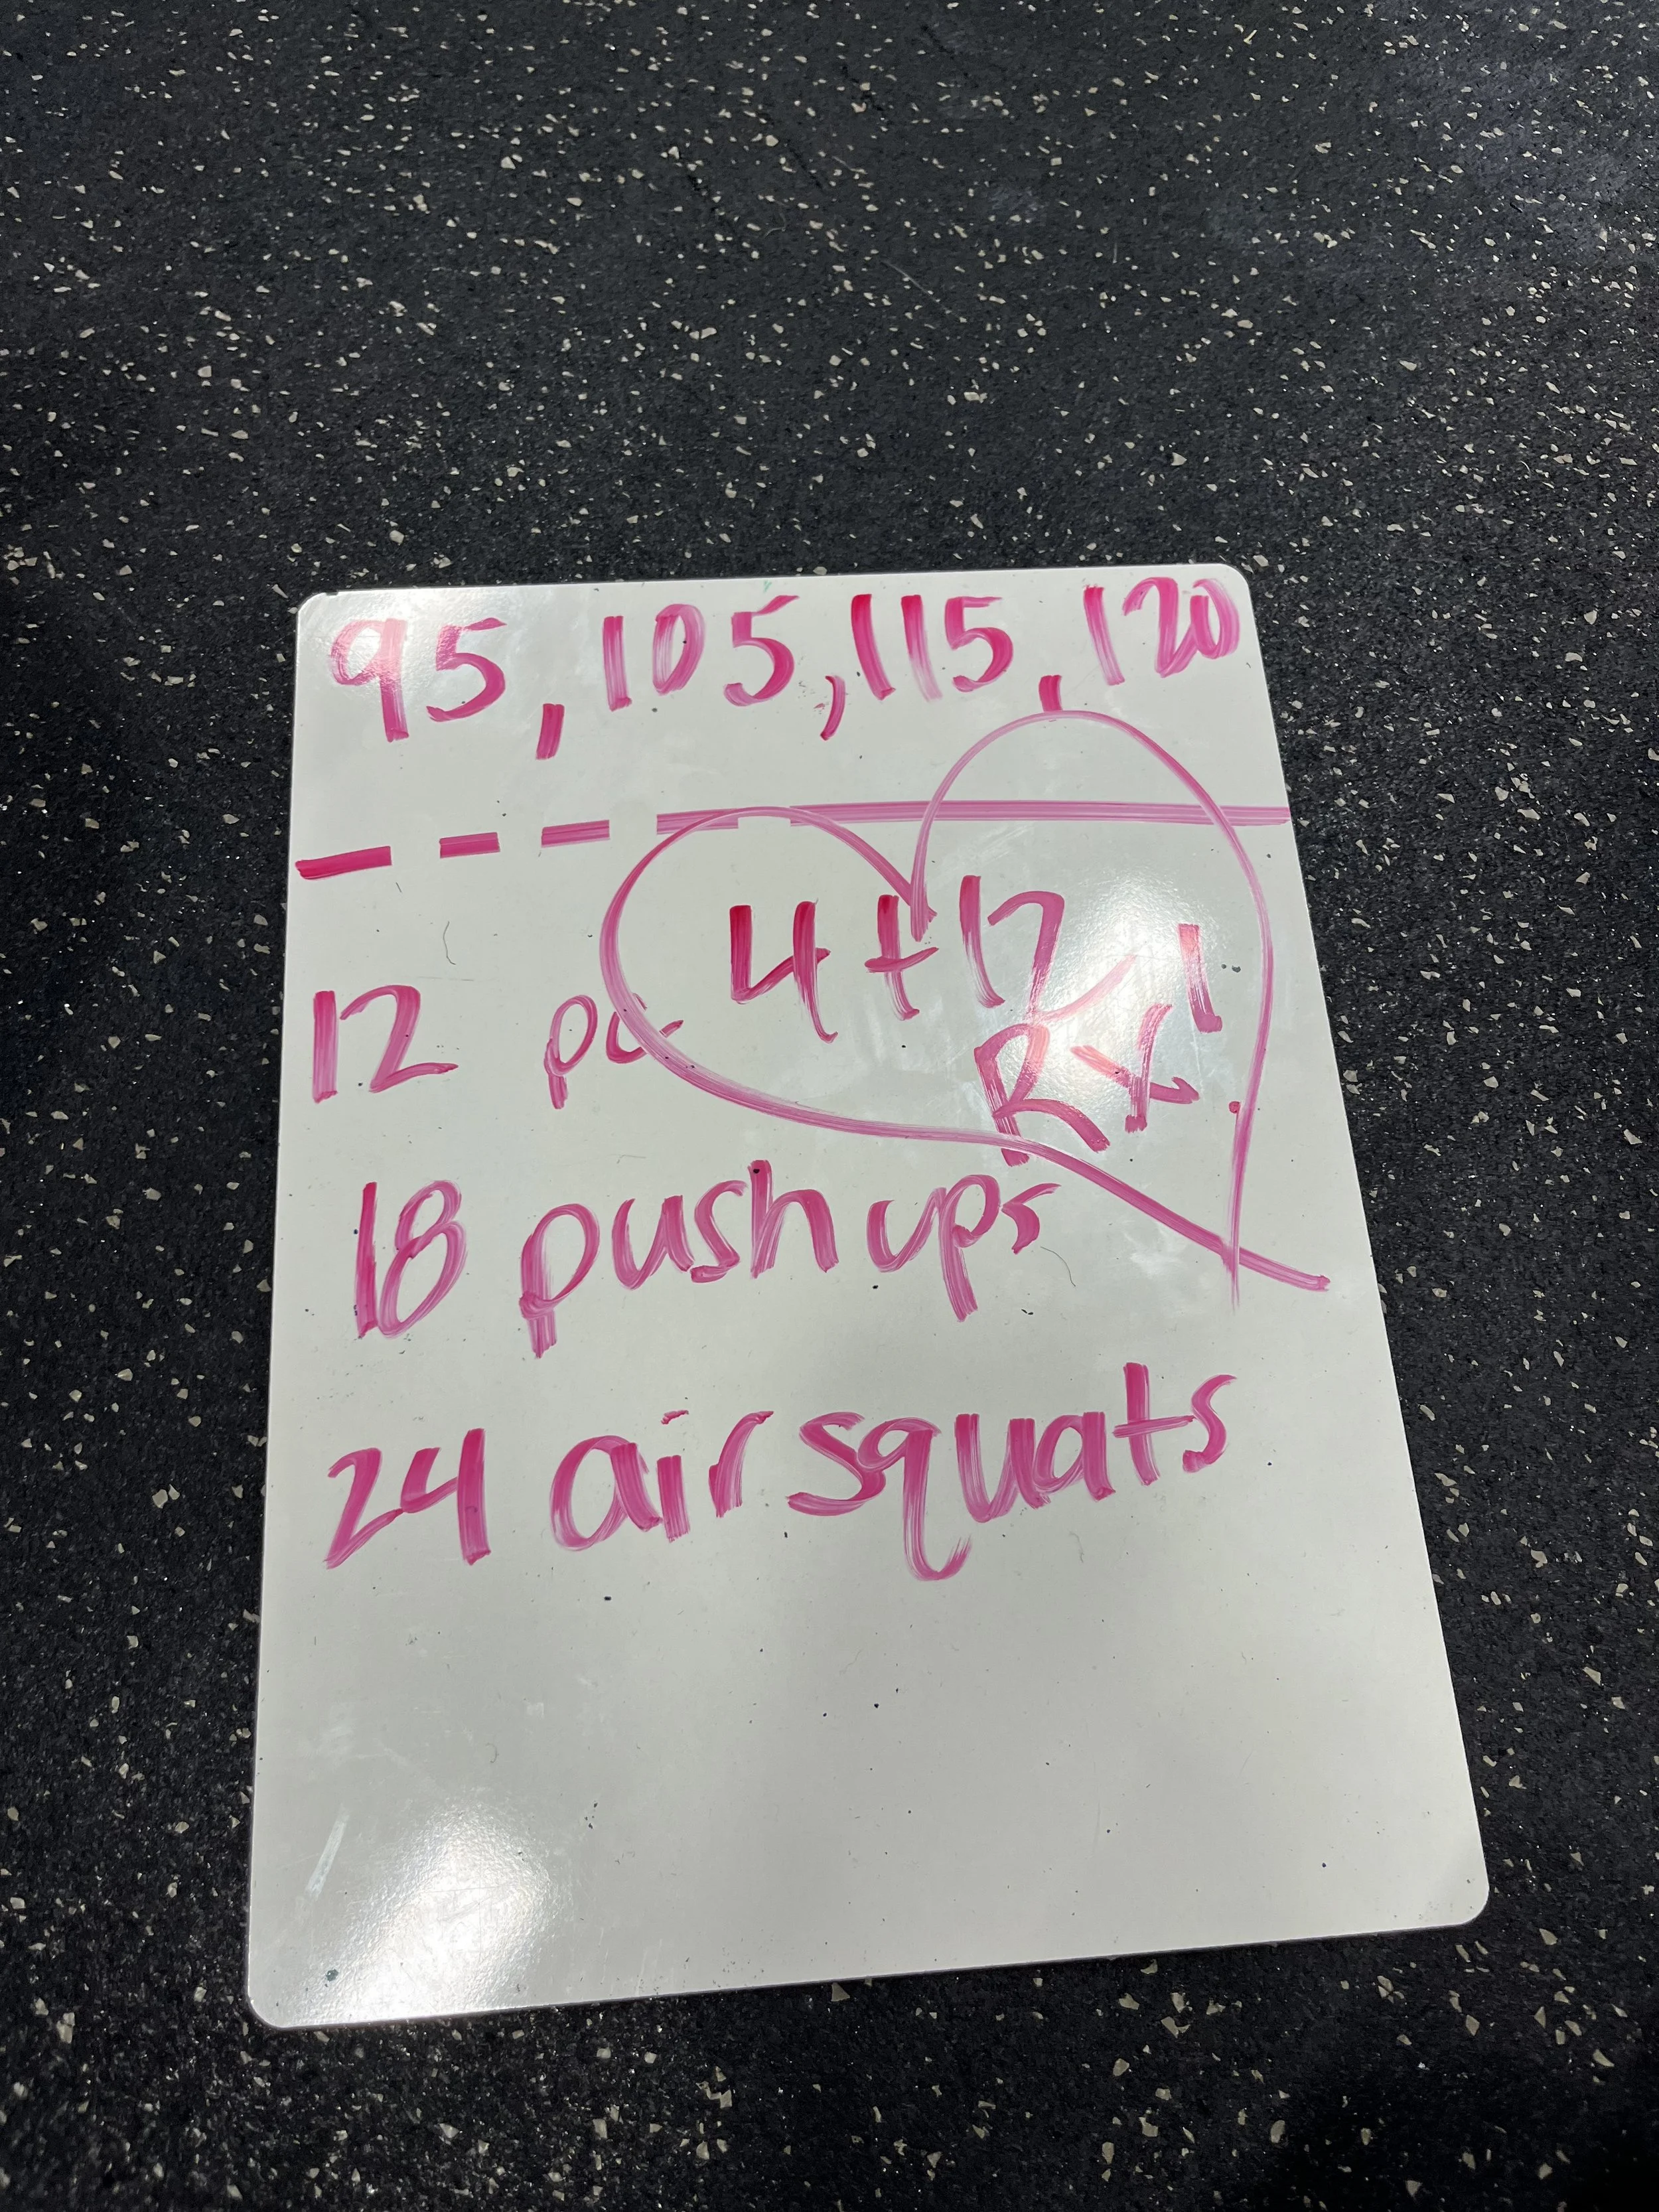 95, 105, 115, 120
4+12
Rx!
12 pc
18 push ups
24 air squats